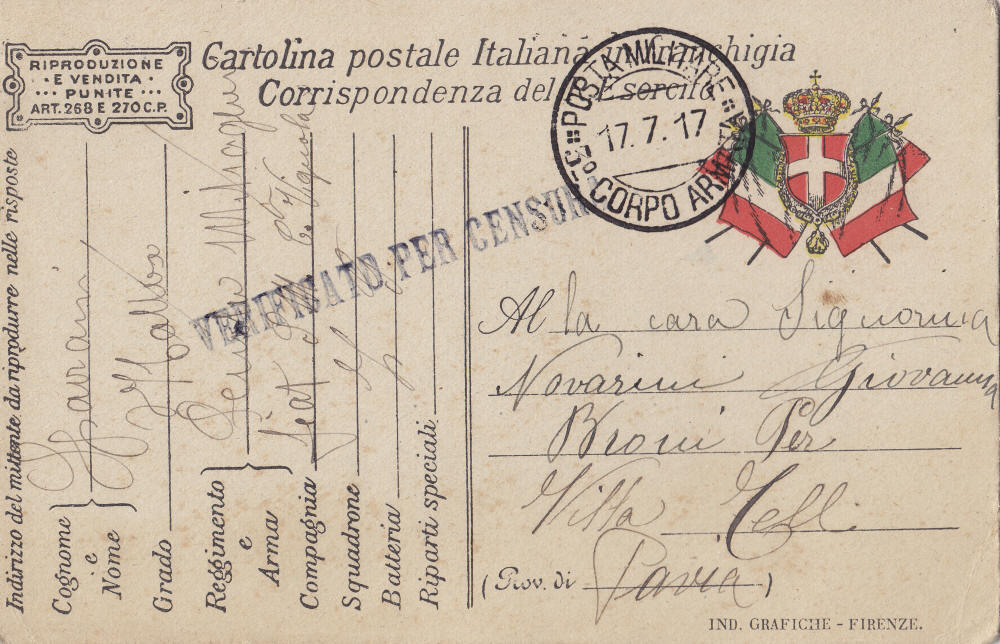 RIPRODUZIONE
E VENDITA
PUNITE
ART. 268 E 270 C.P.
Cartolina postale Italiana in franchigia
Corrispondenza del R. Esercito
POSTA MILITARE
17.7.17
3º CORPO ARMATA
VERIFICATO PER CENSURA
Indirizzo del mittente da riprodurre nelle risposte
Cognome
e
Nome
Grado
Reggimento
e
Arma
Compagnia
Squadrone
Batteria
Riparti speciali
Al la cara Signorina
Novarini Giovanna
Broni Per
Villa
(Prov. di Pavia)
IND. GRAFICHE - FIRENZE.